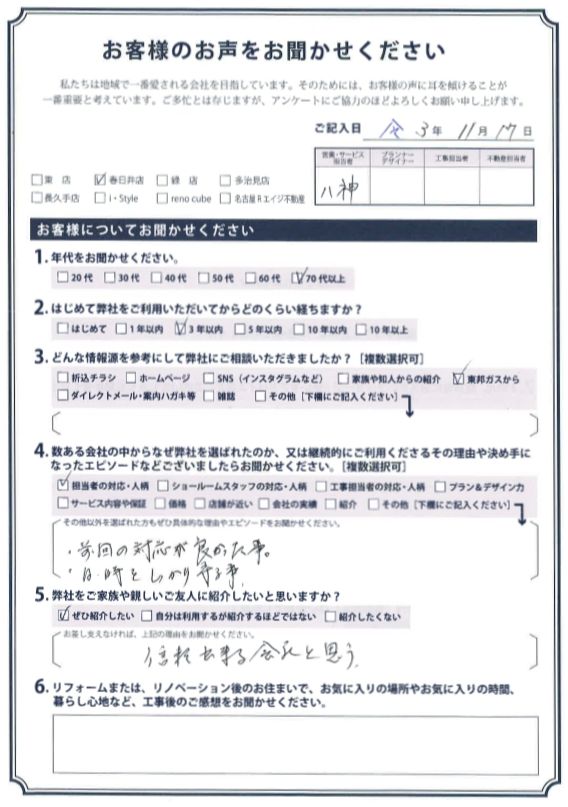 お客様のお声をお聞かせください
私たちは地域で一番愛される会社を目指しています。そのためには、お客様の声に耳を傾けることが
一番重要と考えています。ご多忙とは存じますが、アンケートにご協力のほどよろしくお願い申し上げます。
ご記入日 令3年 11月 17日
営業・サービス担当者 プランナーデザイナー 工事担当者 不動産担当者
八神
□東 店 ☑春日井店 □緑 店 □多治見店
□長久手店 □i・Style □reno cube □名古屋Rエイジ不動産
お客様についてお聞かせください
1. 年代をお聞かせください。
□20代 □30代 □40代 □50代 □60代 ☑70代以上
2. はじめて弊社をご利用いただいてからどのくらい経ちますか？
□はじめて □1年以内 ☑3年以内 □5年以内 □10年以内 □10年以上
3. どんな情報源を参考にして弊社にご相談いただきましたか？［複数選択可］
□折込チラシ □ホームページ □SNS（インスタグラムなど） □家族や知人からの紹介 ☑東邦ガスから
□ダイレクトメール・案内ハガキ等 □雑誌 □その他［下欄にご記入ください］
4. 数ある会社の中からなぜ弊社を選ばれたのか、又は継続的にご利用くださるその理由や決め手に
なったエピソードなどございましたらお聞かせください。［複数選択可］
☑担当者の対応・人柄 □ショールームスタッフの対応・人柄 □工事担当者の対応・人柄 □プラン&デザイン力
□サービス内容や保証 □価格 □店舗が近い □会社の実績 □紹介 □その他［下欄にご記入ください］
その他以外を選ばれた方もぜひ具体的な理由やエピソードをお聞かせください。
・前回の対応が良かった事。
・日時をしっかり守る事。
5. 弊社をご家族や親しいご友人に紹介したいと思いますか？
☑ぜひ紹介したい □自分は利用するが紹介するほどではない □紹介したくない
お差し支えなければ、上記の理由をお聞かせください。
信頼出来る会社と思う。
6. リフォームまたは、リノベーション後のお住まいで、お気に入りの場所やお気に入りの時間、
暮らし心地など、工事後のご感想をお聞かせください。